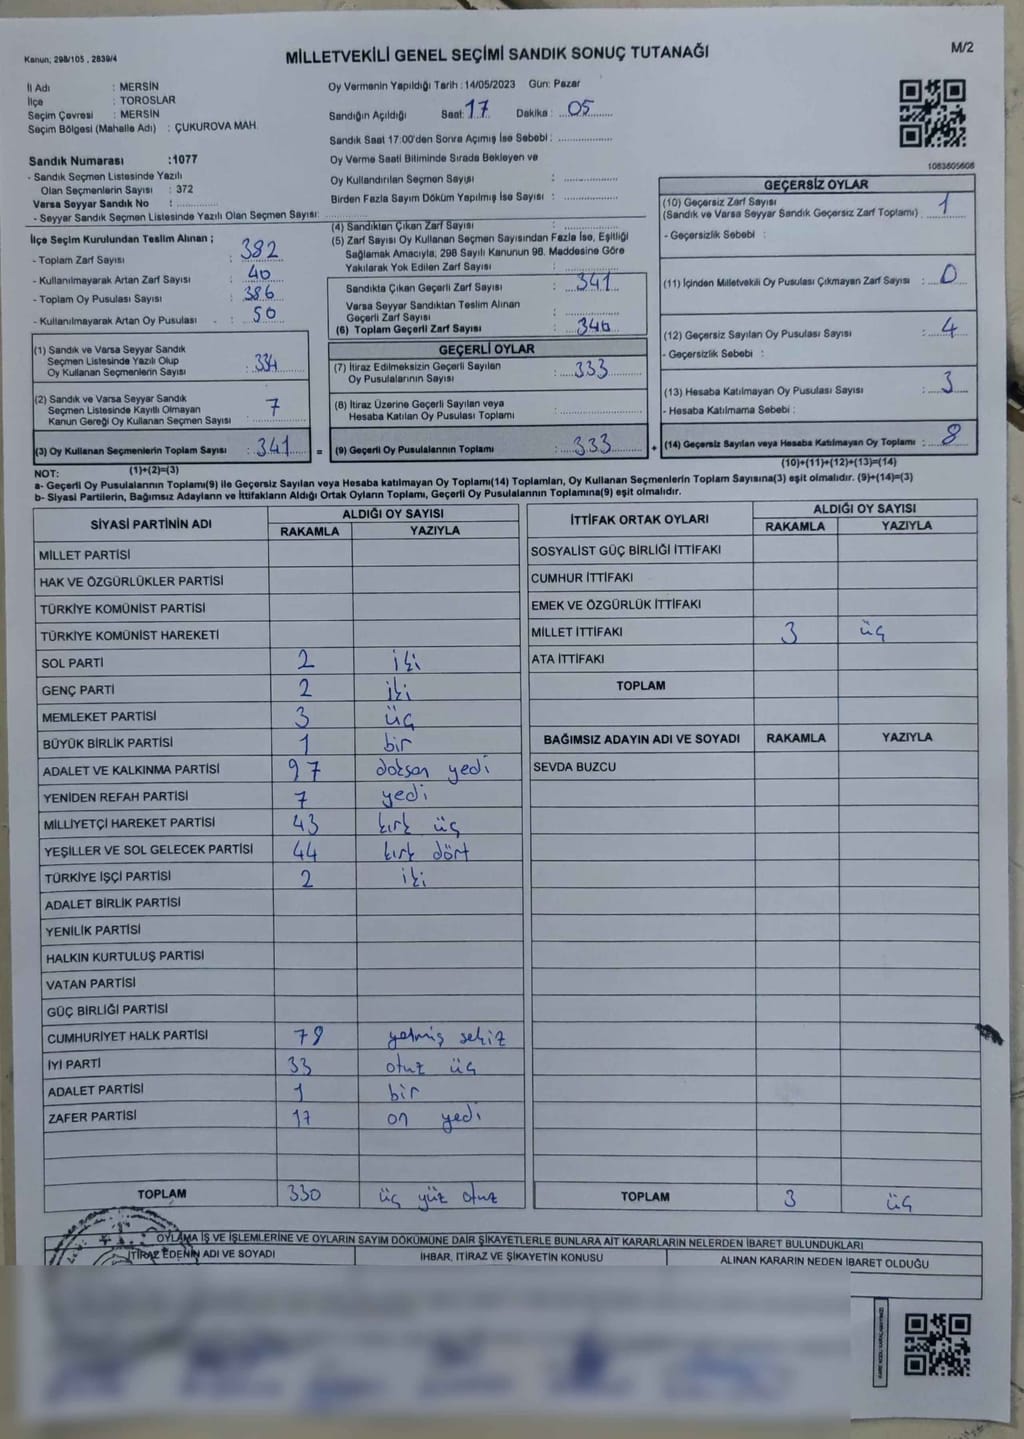 Kanun; 298/105 , 2839/4
MİLLETVEKİLİ GENEL SEÇİMİ SANDIK SONUÇ TUTANAĞI
M/2
İl Adı : MERSİN
İlçe : TOROSLAR
Seçim Çevresi : MERSİN
Seçim Bölgesi (Mahalle Adı) : ÇUKUROVA MAH.
Sandık Numarası :1077
- Sandık Seçmen Listesinde Yazılı
Olan Seçmenlerin Sayısı : 372
Varsa Seyyar Sandık No :
- Seyyar Sandık Seçmen Listesinde Yazılı Olan Seçmen Sayısı:
Oy Vermenin Yapıldığı Tarih : 14/05/2023 Gün: Pazar
Sandığın Açıldığı Saat: 17 Dakika : 05
Sandık Saat 17:00'den Sonra Açımış İse Sebebi :
Oy Verme Saati Bitiminde Sırada Bekleyen ve
Oy Kullandırılan Seçmen Sayısı :
Birden Fazla Sayım Döküm Yapılmış İse Sayısı :
1083605608
İlçe Seçim Kurulundan Teslim Alınan ;
- Toplam Zarf Sayısı : 382
- Kullanılmayarak Artan Zarf Sayısı : 40
- Toplam Oy Pusulası Sayısı : 386
- Kullanılmayarak Artan Oy Pusulası : 50
(1) Sandık ve Varsa Seyyar Sandık
Seçmen Listesinde Yazılı Olup
Oy Kullanan Seçmenlerin Sayısı : 334
(2) Sandık ve Varsa Seyyar Sandık
Seçmen Listesinde Kayıtlı Olmayan
Kanun Gereği Oy Kullanan Seçmen Sayısı : 7
(3) Oy Kullanan Seçmenlerin Toplam Sayısı : 341 =
(1)+(2)=(3)
(4) Sandıktan Çıkan Zarf Sayısı :
(5) Zarf Sayısı Oy Kullanan Seçmen Sayısından Fazla İse, Eşitliği
Sağlamak Amacıyla, 298 Sayılı Kanunun 98. Maddesine Göre
Yakılarak Yok Edilen Zarf Sayısı :
Sandıkta Çıkan Geçerli Zarf Sayısı : 341
Varsa Seyyar Sandıktan Teslim Alınan
Geçerli Zarf Sayısı :
(6) Toplam Geçerli Zarf Sayısı : 340
GEÇERLİ OYLAR
(7) İtiraz Edilmeksizin Geçerli Sayılan
Oy Pusulalarının Sayısı : 333
(8) İtiraz Üzerine Geçerli Sayılan veya
Hesaba Katılan Oy Pusulası Toplamı :
(9) Geçerli Oy Pusulalarının Toplamı : 333 +
GEÇERSİZ OYLAR
(10) Geçersiz Zarf Sayısı
(Sandık ve Varsa Seyyar Sandık Geçersiz Zarf Toplamı) : 1
- Geçersizlik Sebebi :
(11) İçinden Milletvekili Oy Pusulası Çıkmayan Zarf Sayısı : 0
(12) Geçersiz Sayılan Oy Pusulası Sayısı : 4
- Geçersizlik Sebebi :
(13) Hesaba Katılmayan Oy Pusulası Sayısı : 3
- Hesaba Katılmama Sebebi :
(14) Geçersiz Sayılan veya Hesaba Katılmayan Oy Toplamı : 8
(10)+(11)+(12)+(13)=(14)
NOT:
a- Geçerli Oy Pusulalarının Toplamı(9) ile Geçersiz Sayılan veya Hesaba katılmayan Oy Toplamı(14) Toplamları, Oy Kullanan Seçmenlerin Toplam Sayısına(3) eşit olmalıdır. (9)+(14)=(3)
b- Siyasi Partilerin, Bağımsız Adayların ve İttifakların Aldığı Ortak Oyların Toplamı, Geçerli Oy Pusulalarının Toplamına(9) eşit olmalıdır.
SİYASİ PARTİNİN ADI ALDIĞI OY SAYISI
RAKAMLA YAZIYLA
MİLLET PARTİSİ
HAK VE ÖZGÜRLÜKLER PARTİSİ
TÜRKİYE KOMÜNİST PARTİSİ
TÜRKİYE KOMÜNİST HAREKETİ
SOL PARTİ 2 iki
GENÇ PARTİ 2 iki
MEMLEKET PARTİSİ 3 üç
BÜYÜK BİRLİK PARTİSİ 1 bir
ADALET VE KALKINMA PARTİSİ 97 doksan yedi
YENİDEN REFAH PARTİSİ 7 yedi
MİLLİYETÇİ HAREKET PARTİSİ 43 kırk üç
YEŞİLLER VE SOL GELECEK PARTİSİ 44 kırk dört
TÜRKİYE İŞÇİ PARTİSİ 2 iki
ADALET BİRLİK PARTİSİ
YENİLİK PARTİSİ
HALKIN KURTULUŞ PARTİSİ
VATAN PARTİSİ
GÜÇ BİRLİĞİ PARTİSİ
CUMHURİYET HALK PARTİSİ 78 yetmiş sekiz
İYİ PARTİ 33 otuz üç
ADALET PARTİSİ 1 bir
ZAFER PARTİSİ 17 on yedi
TOPLAM 330 üç yüz otuz
İTTİFAK ORTAK OYLARI ALDIĞI OY SAYISI
RAKAMLA YAZIYLA
SOSYALİST GÜÇ BİRLİĞİ İTTİFAKI
CUMHUR İTTİFAKI
EMEK VE ÖZGÜRLÜK İTTİFAKI
MİLLET İTTİFAKI 3 üç
ATA İTTİFAKI
TOPLAM
BAĞIMSIZ ADAYIN ADI VE SOYADI RAKAMLA YAZIYLA
SEVDA BUZCU
TOPLAM 3 üç
OYLAMA İŞ VE İŞLEMLERİNE VE OYLARIN SAYIM DÖKÜMÜNE DAİR ŞİKAYETLERLE BUNLARA AİT KARARLARIN NELERDEN İBARET BULUNDUKLARI
İTİRAZ EDENİN ADI VE SOYADI İHBAR, İTİRAZ VE ŞİKAYETİN KONUSU ALINAN KARARIN NEDEN İBARET OLDUĞU